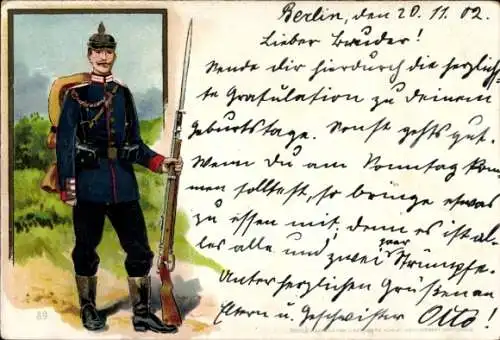 Berlin, den 20.11.02.
Lieber Bruder!
Sende dir hierdurch die herzlich-
ste Gratulation zu deinem
Geburtstage. Sonst gehts gut.
Wenn du am Sonntag kom-
men solltest, so bringe etwas
zu essen mit, denn es ist al-
les alle und zwei paar Strümpfe.
Unter herzlichen Grüßen an
Eltern u. Geschwister Otto!
89